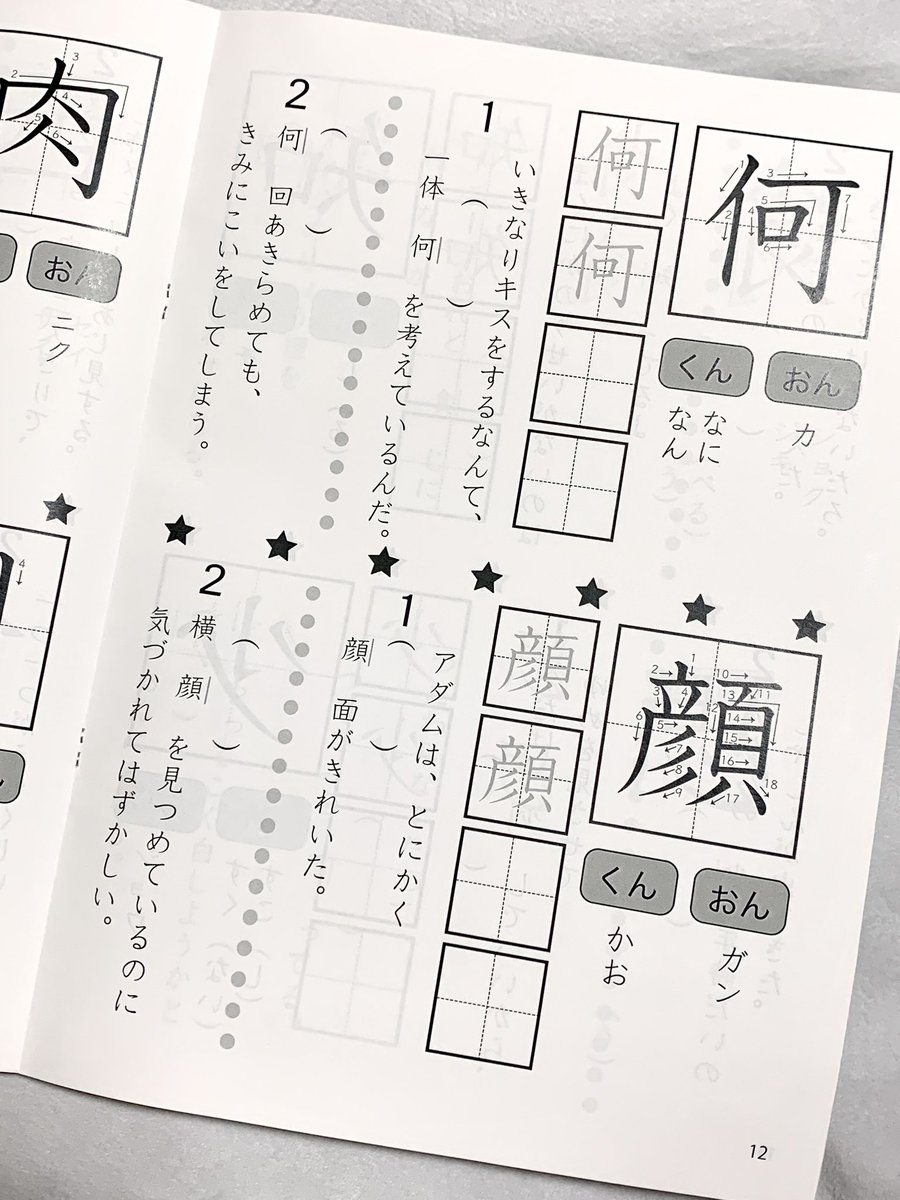 何
おん
カ
くん
なに
なん
何
何
1
いきなりキスをするなんて、
一体何（　）を考えているんだ。
2
何（　）回あきらめても、
きみにこいをしてしまう。
顔
おん
ガン
くん
かお
顔
顔
1
アダムは、とにかく
顔（　）面がきれいだ。
2
横顔（　）を見つめているのに
気づかれてはずかしい。
12
肉
おん
ニク